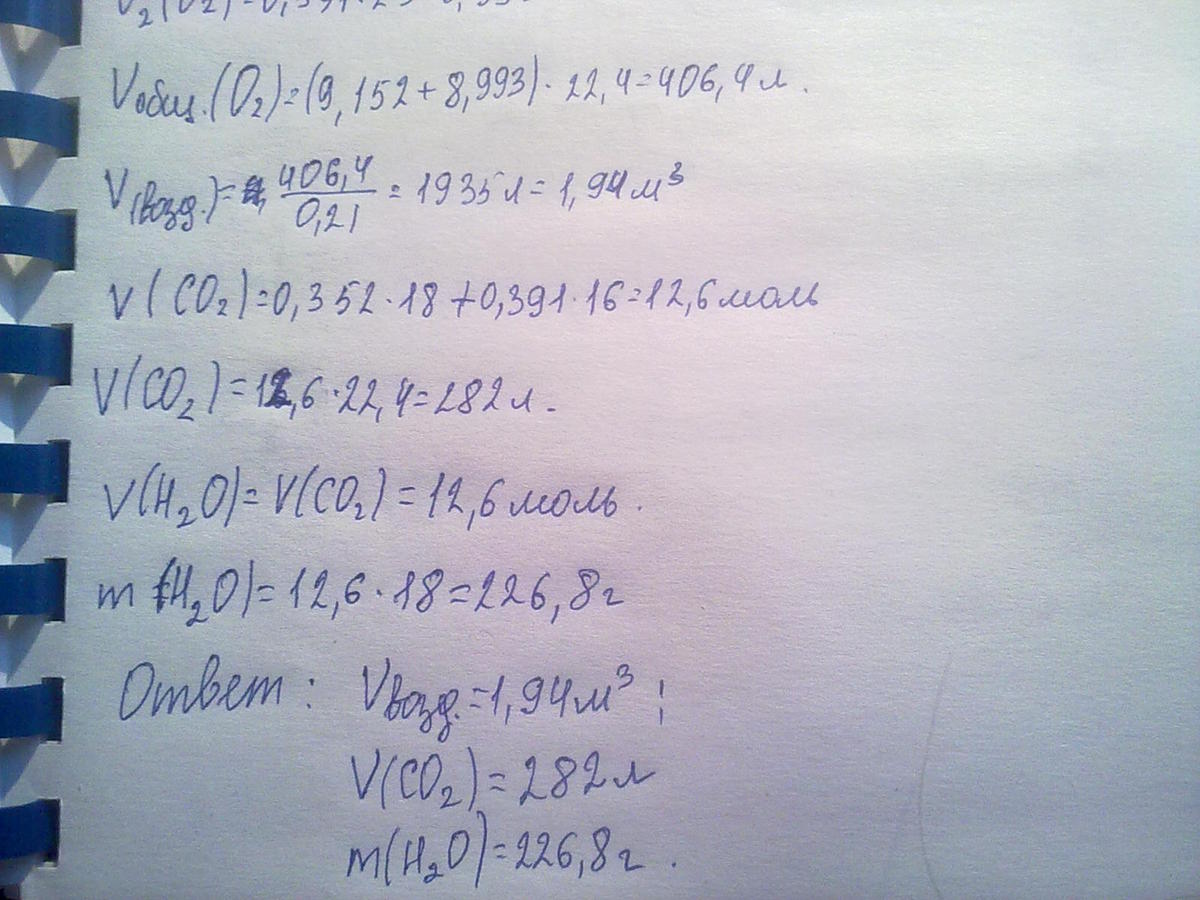 Vобщ.(O₂)=(9,152+8,993)·22,4=406,4л.
V(возд.)= 406,4/0,21 = 1935л=1,94м³
ν(CO₂)=0,352·18+0,391·16=12,6моль
V(CO₂)=12,6·22,4=282л.
ν(H₂O)=ν(CO₂)=12,6моль.
m(H₂O)=12,6·18=226,8г
Ответ: Vвозд.=1,94м³;
V(CO₂)=282л
m(H₂O)=226,8г.